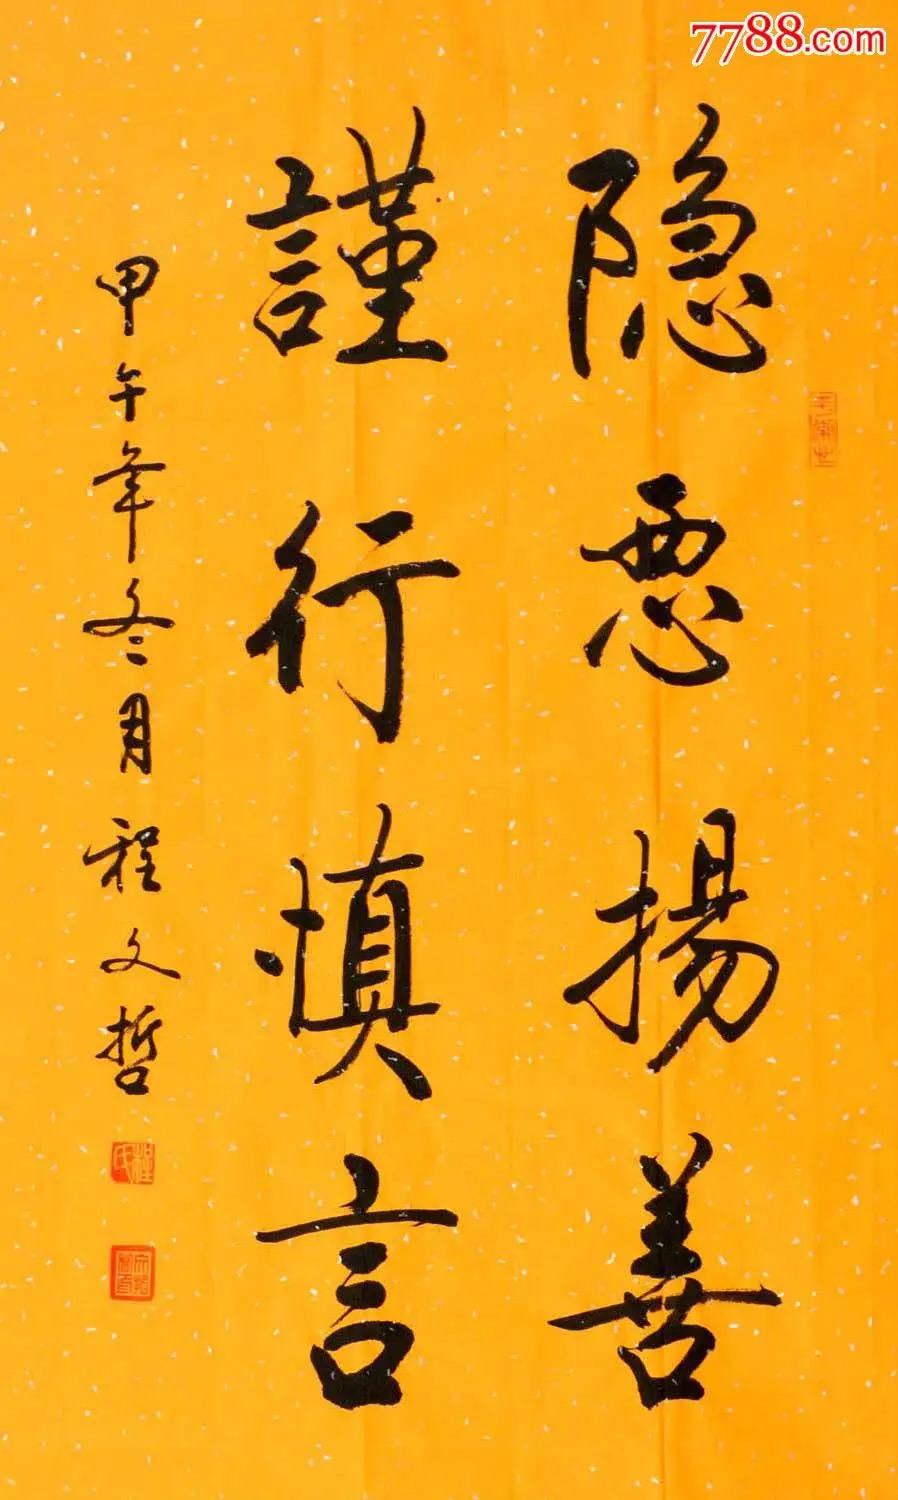 7788.com
隐恶揚善
謹行慎言
甲午年冬月程文哲